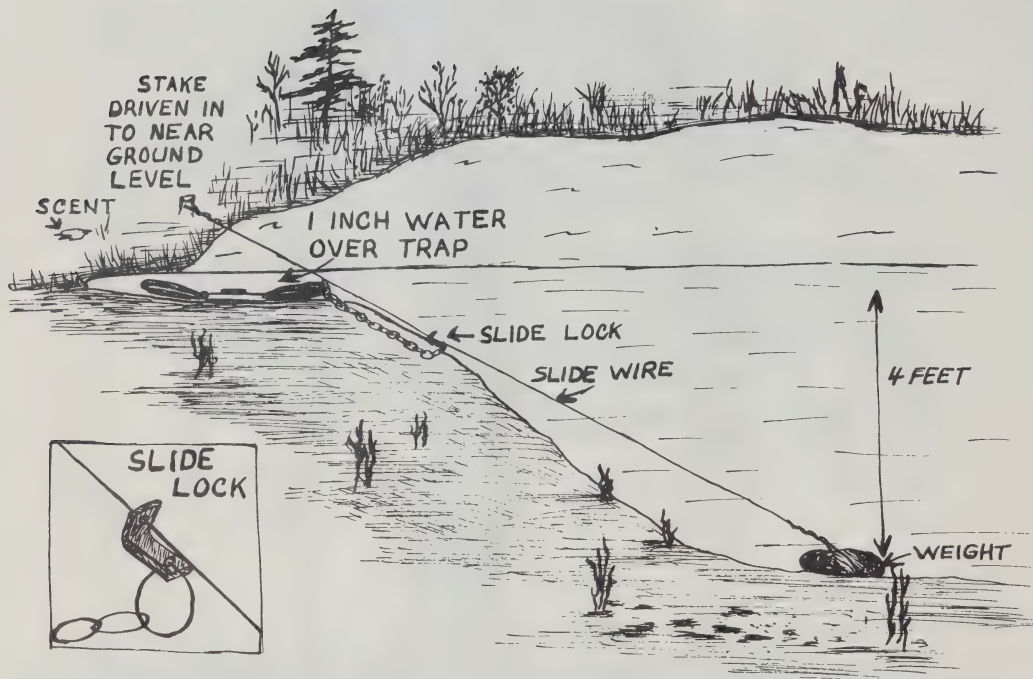 STAKE
DRIVEN IN
TO NEAR
GROUND
LEVEL
SCENT
1 INCH WATER
OVER TRAP
SLIDE LOCK
SLIDE WIRE
4 FEET
WEIGHT
SLIDE
LOCK